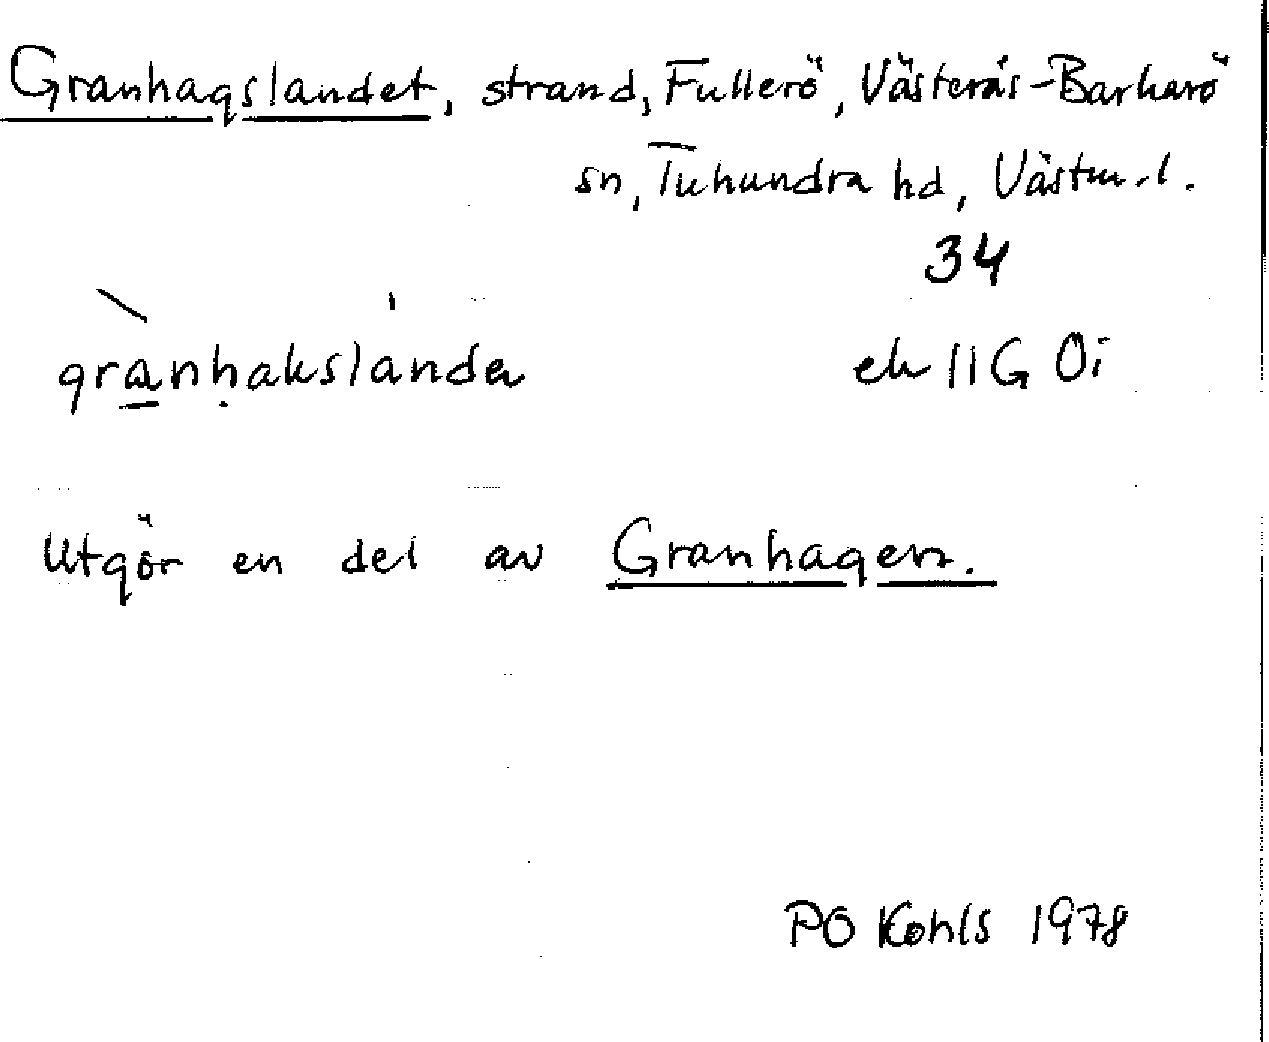 Granhagslandet, strand, Fullerö, Västerås-Barkarö
sn, Tuhundra hd, Västm.l.
34
grànhakslandə ek 11G 0i
Utgör en del av Granhagen.
PO Kohls 1978